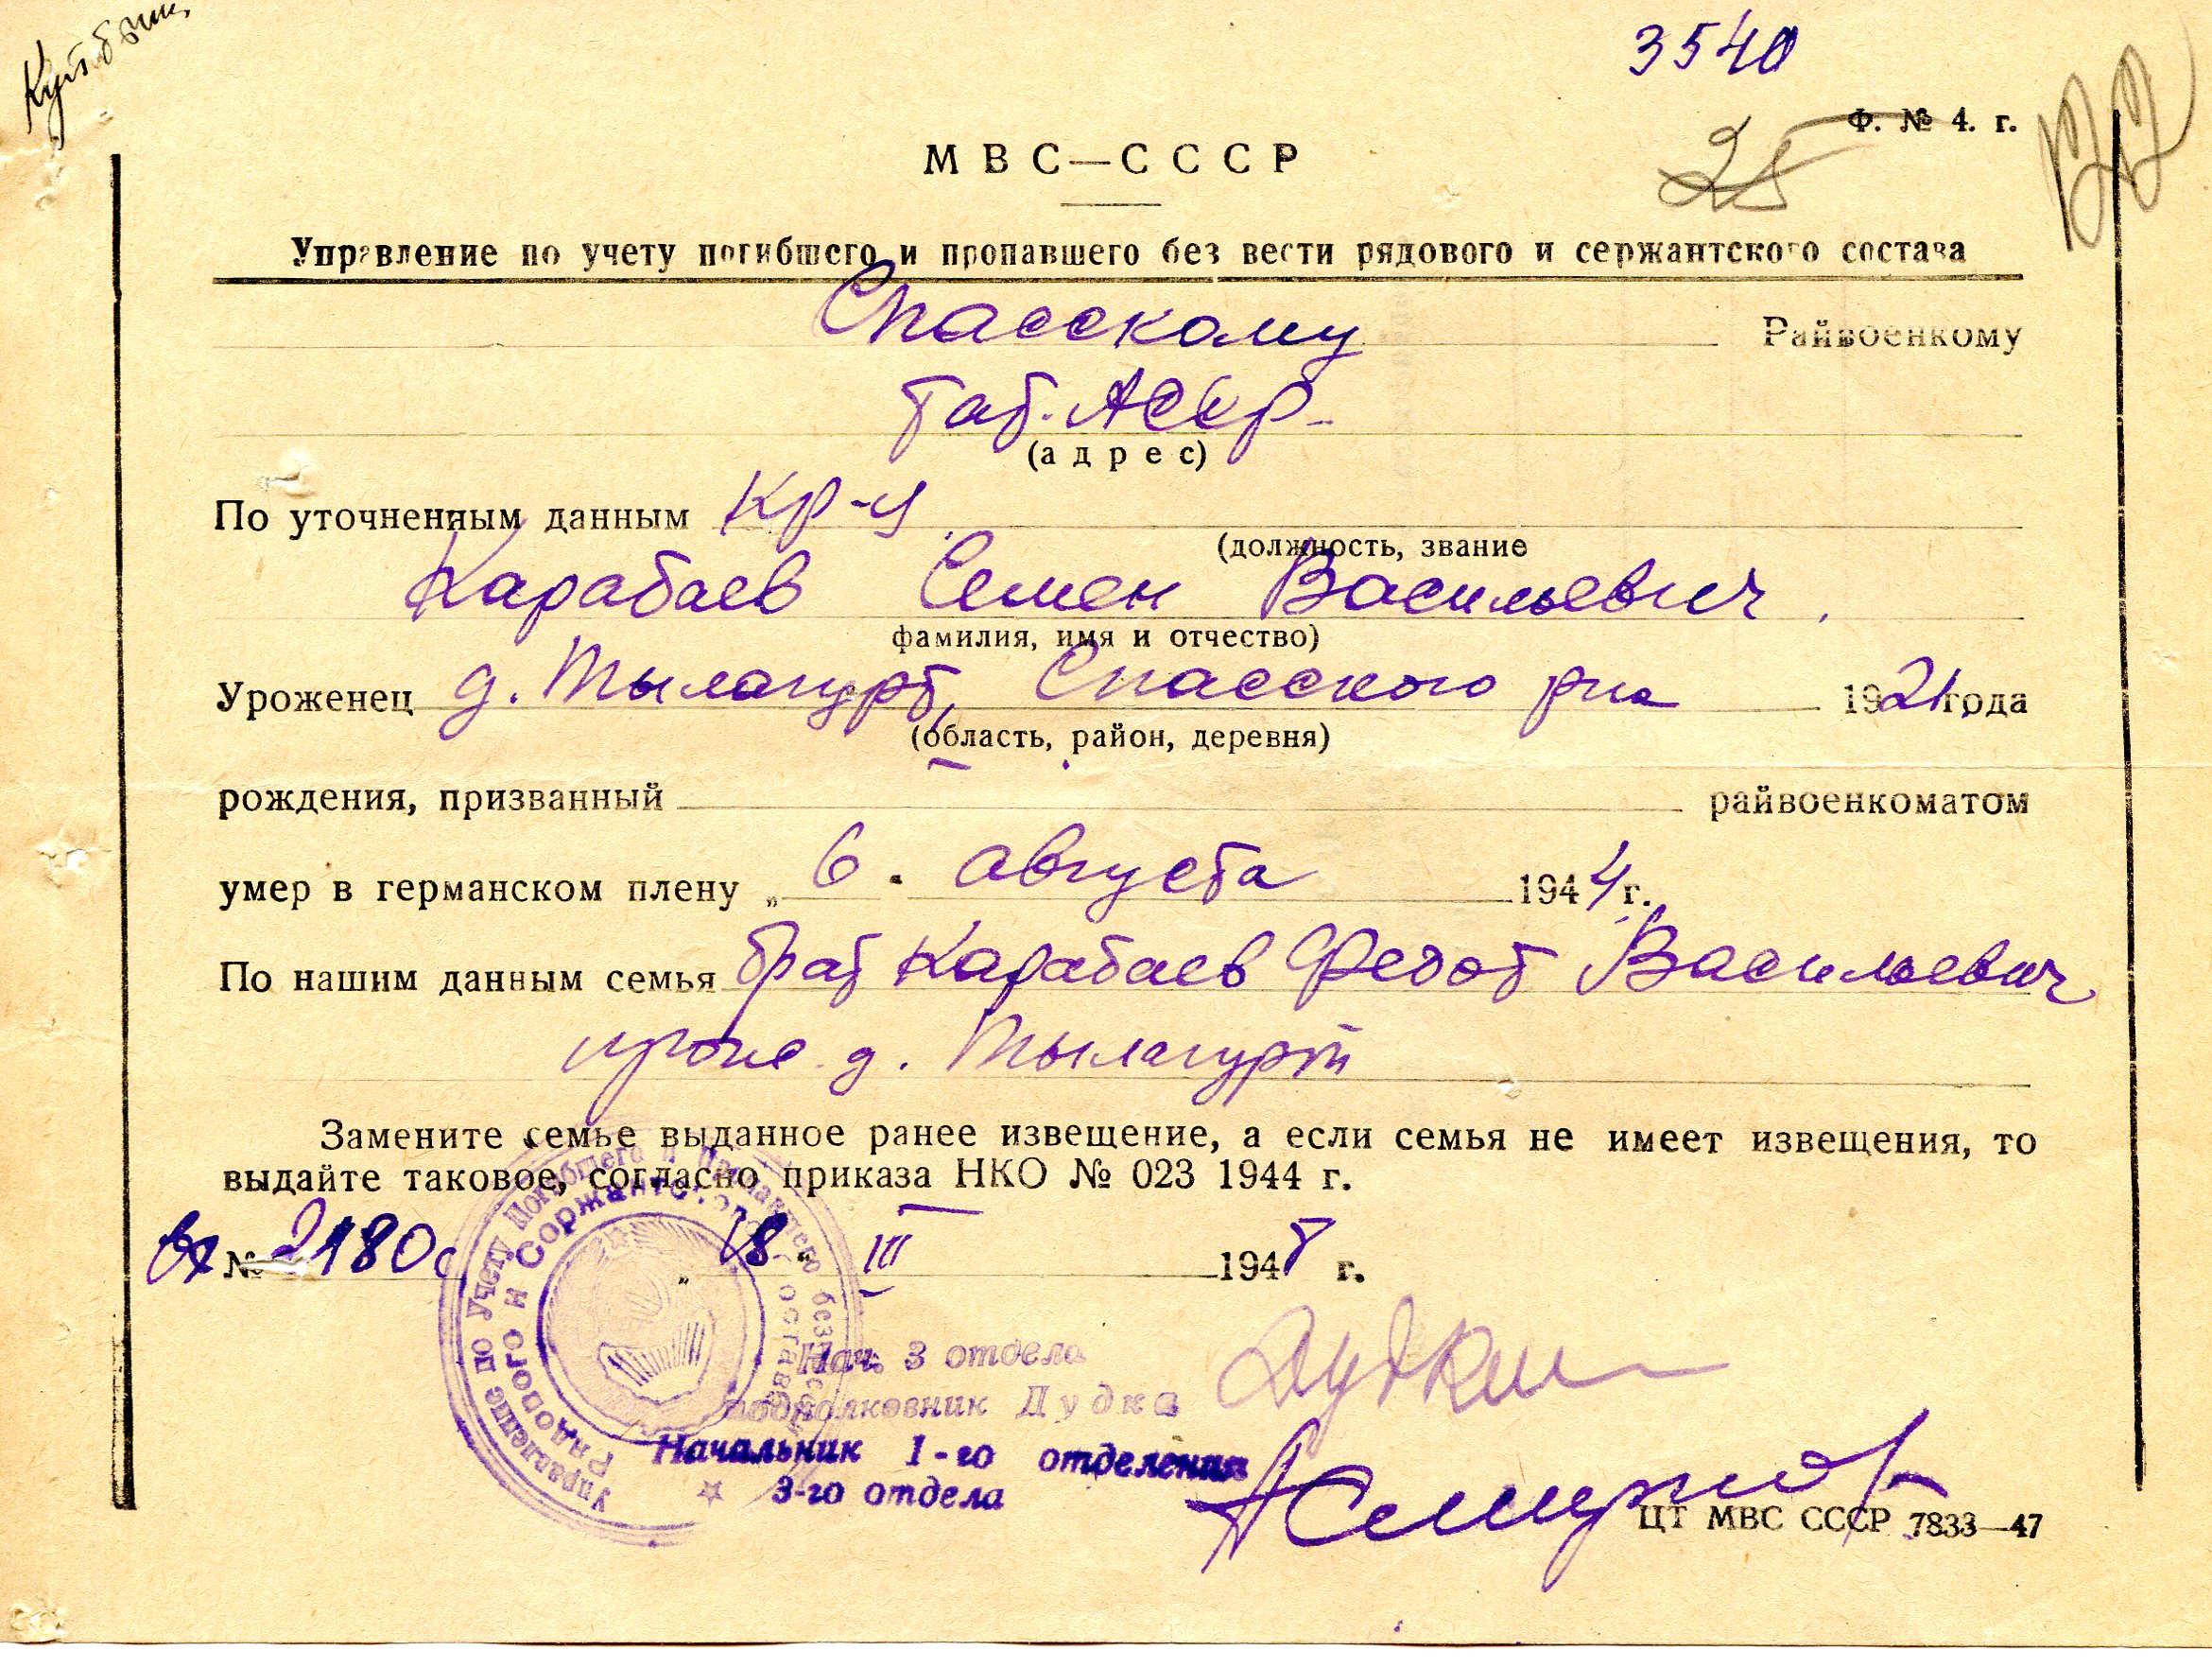 3540
Ф. № 4. г.
25
МВС—СССР
Управление по учету погибшего и пропавшего без вести рядового и сержантского состава
Спасскому Райвоенкому
Тат. АССР
(адрес)
По уточненным данным кр-ц
(должность, звание
Карабаев Семен Васильевич
фамилия, имя и отчество)
Уроженец д. Тылагурт, Спасского р-на 1921 года
(область, район, деревня)
рождения, призванный райвоенкоматом
умер в германском плену „6. августа 1944 г.
По нашим данным семья брат Карабаев Федот Васильевич
прож. д. Тылагурт
Замените семье выданное ранее извещение, а если семья не имеет извещения, то
выдайте таковое, согласно приказа НКО № 023 1944 г.
вх № 2180с „18“ III 1948 г.
Управление по Учету Погибшего и Пропавшего без вести
Рядового и Сержантского Состава
Нач. 3 отдела
подполковник Дудка
Начальник 1-го отделения
3-го отдела
ЦТ МВС СССР 7833—47